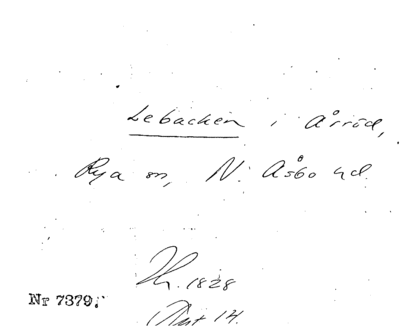 Lebacken i Årröd,
Rya sn, N. Åsbo hd.
1828
Nr 7379.
14.